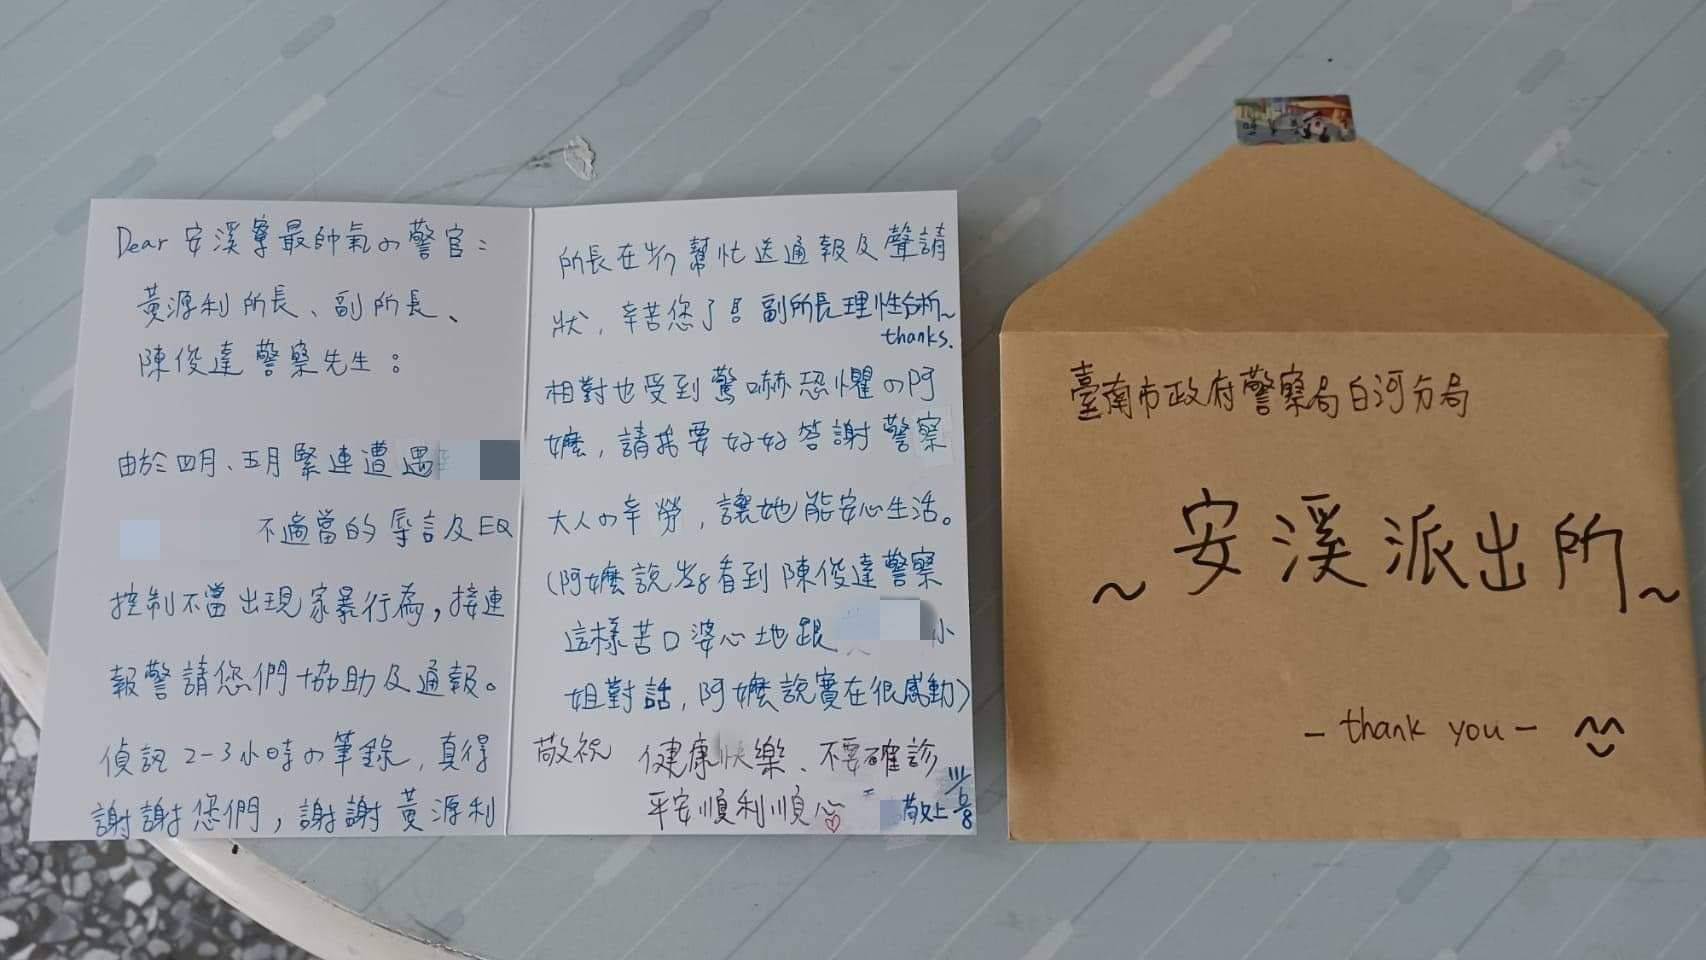 Dear 安溪寮最帥氣の警官：
黃源利所長、副所長、
陳俊達警察先生：
由於四月、五月緊連遭遇
不適當的辱言及EQ
控制不當出現家暴行為，接連
報警請您們協助及通報。
偵訊2-3小時の筆錄，真得
謝謝您們，謝謝黃源利
所長在旁幫忙送通報及聲請
狀，辛苦您了！副所長理性分析~
thanks.
相對也受到驚嚇恐懼の阿
嬤，請我要好好答謝警察
大人の辛勞，讓她能安心生活。
(阿嬤說當看到陳俊達警察
這樣苦口婆心地跟 小
姐對話，阿嬤說實在很感動)
敬祝 健康快樂、不要確診
平安順利順心
敬上 111/6/8
臺南市政府警察局白河分局
~安溪派出所~
- thank you -